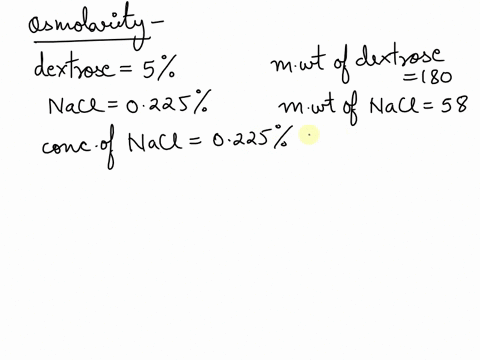 Osmolarity -
dextrose = 5%
NaCl = 0.225%
m.wt of dextrose
= 180
m.wt of NaCl = 58
conc. of NaCl = 0.225%